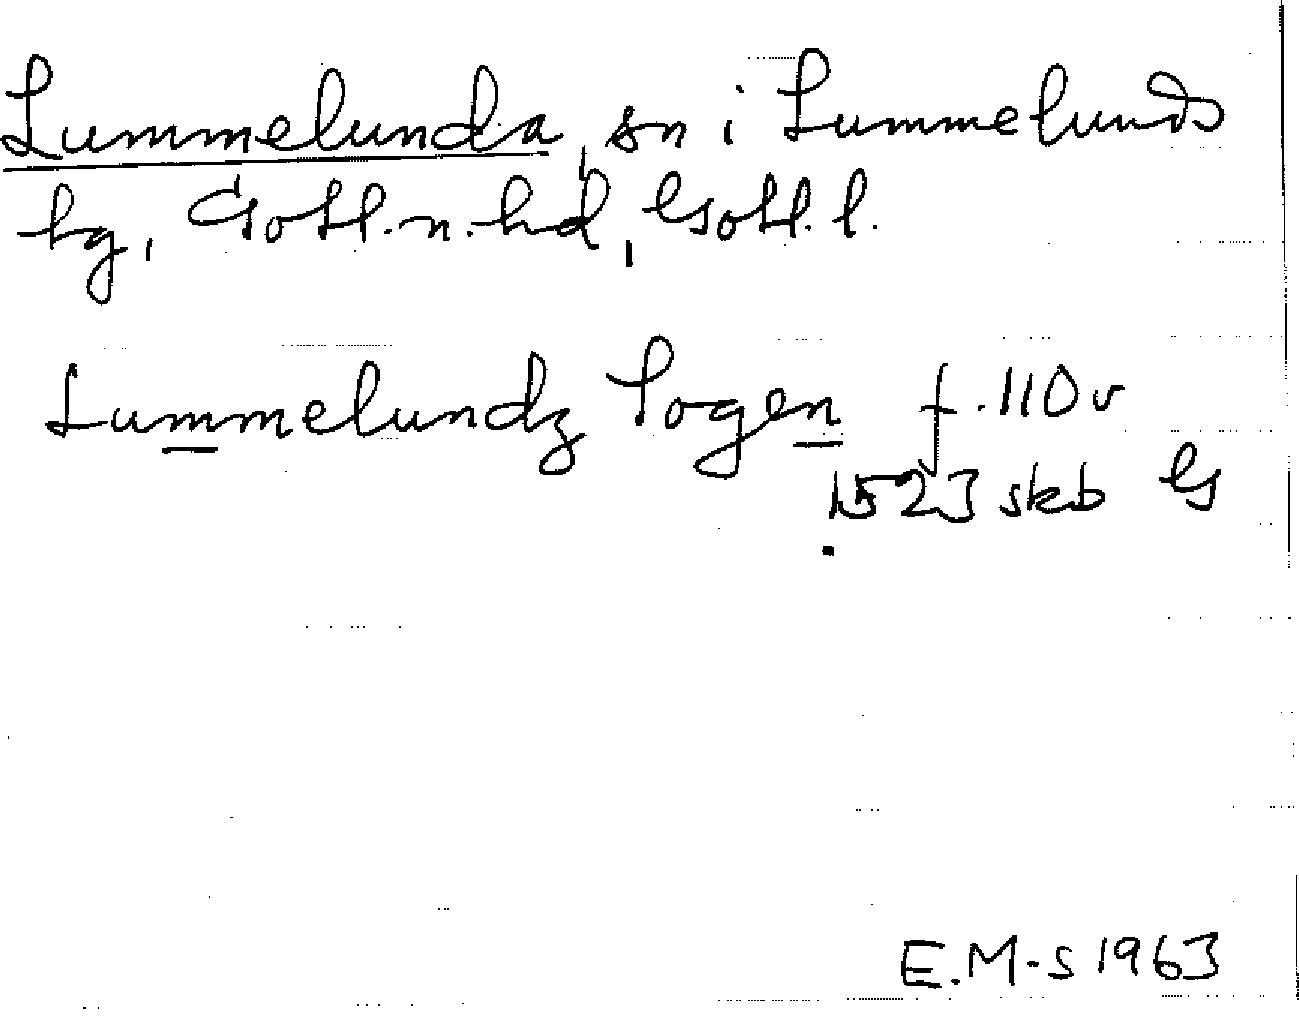 Lummelunda, sn i Lummelunds
tg, Gotl.n.hd, Gotl.l.
Lummelundz Sogen f.110v
1523 skb G
E.M-s 1963